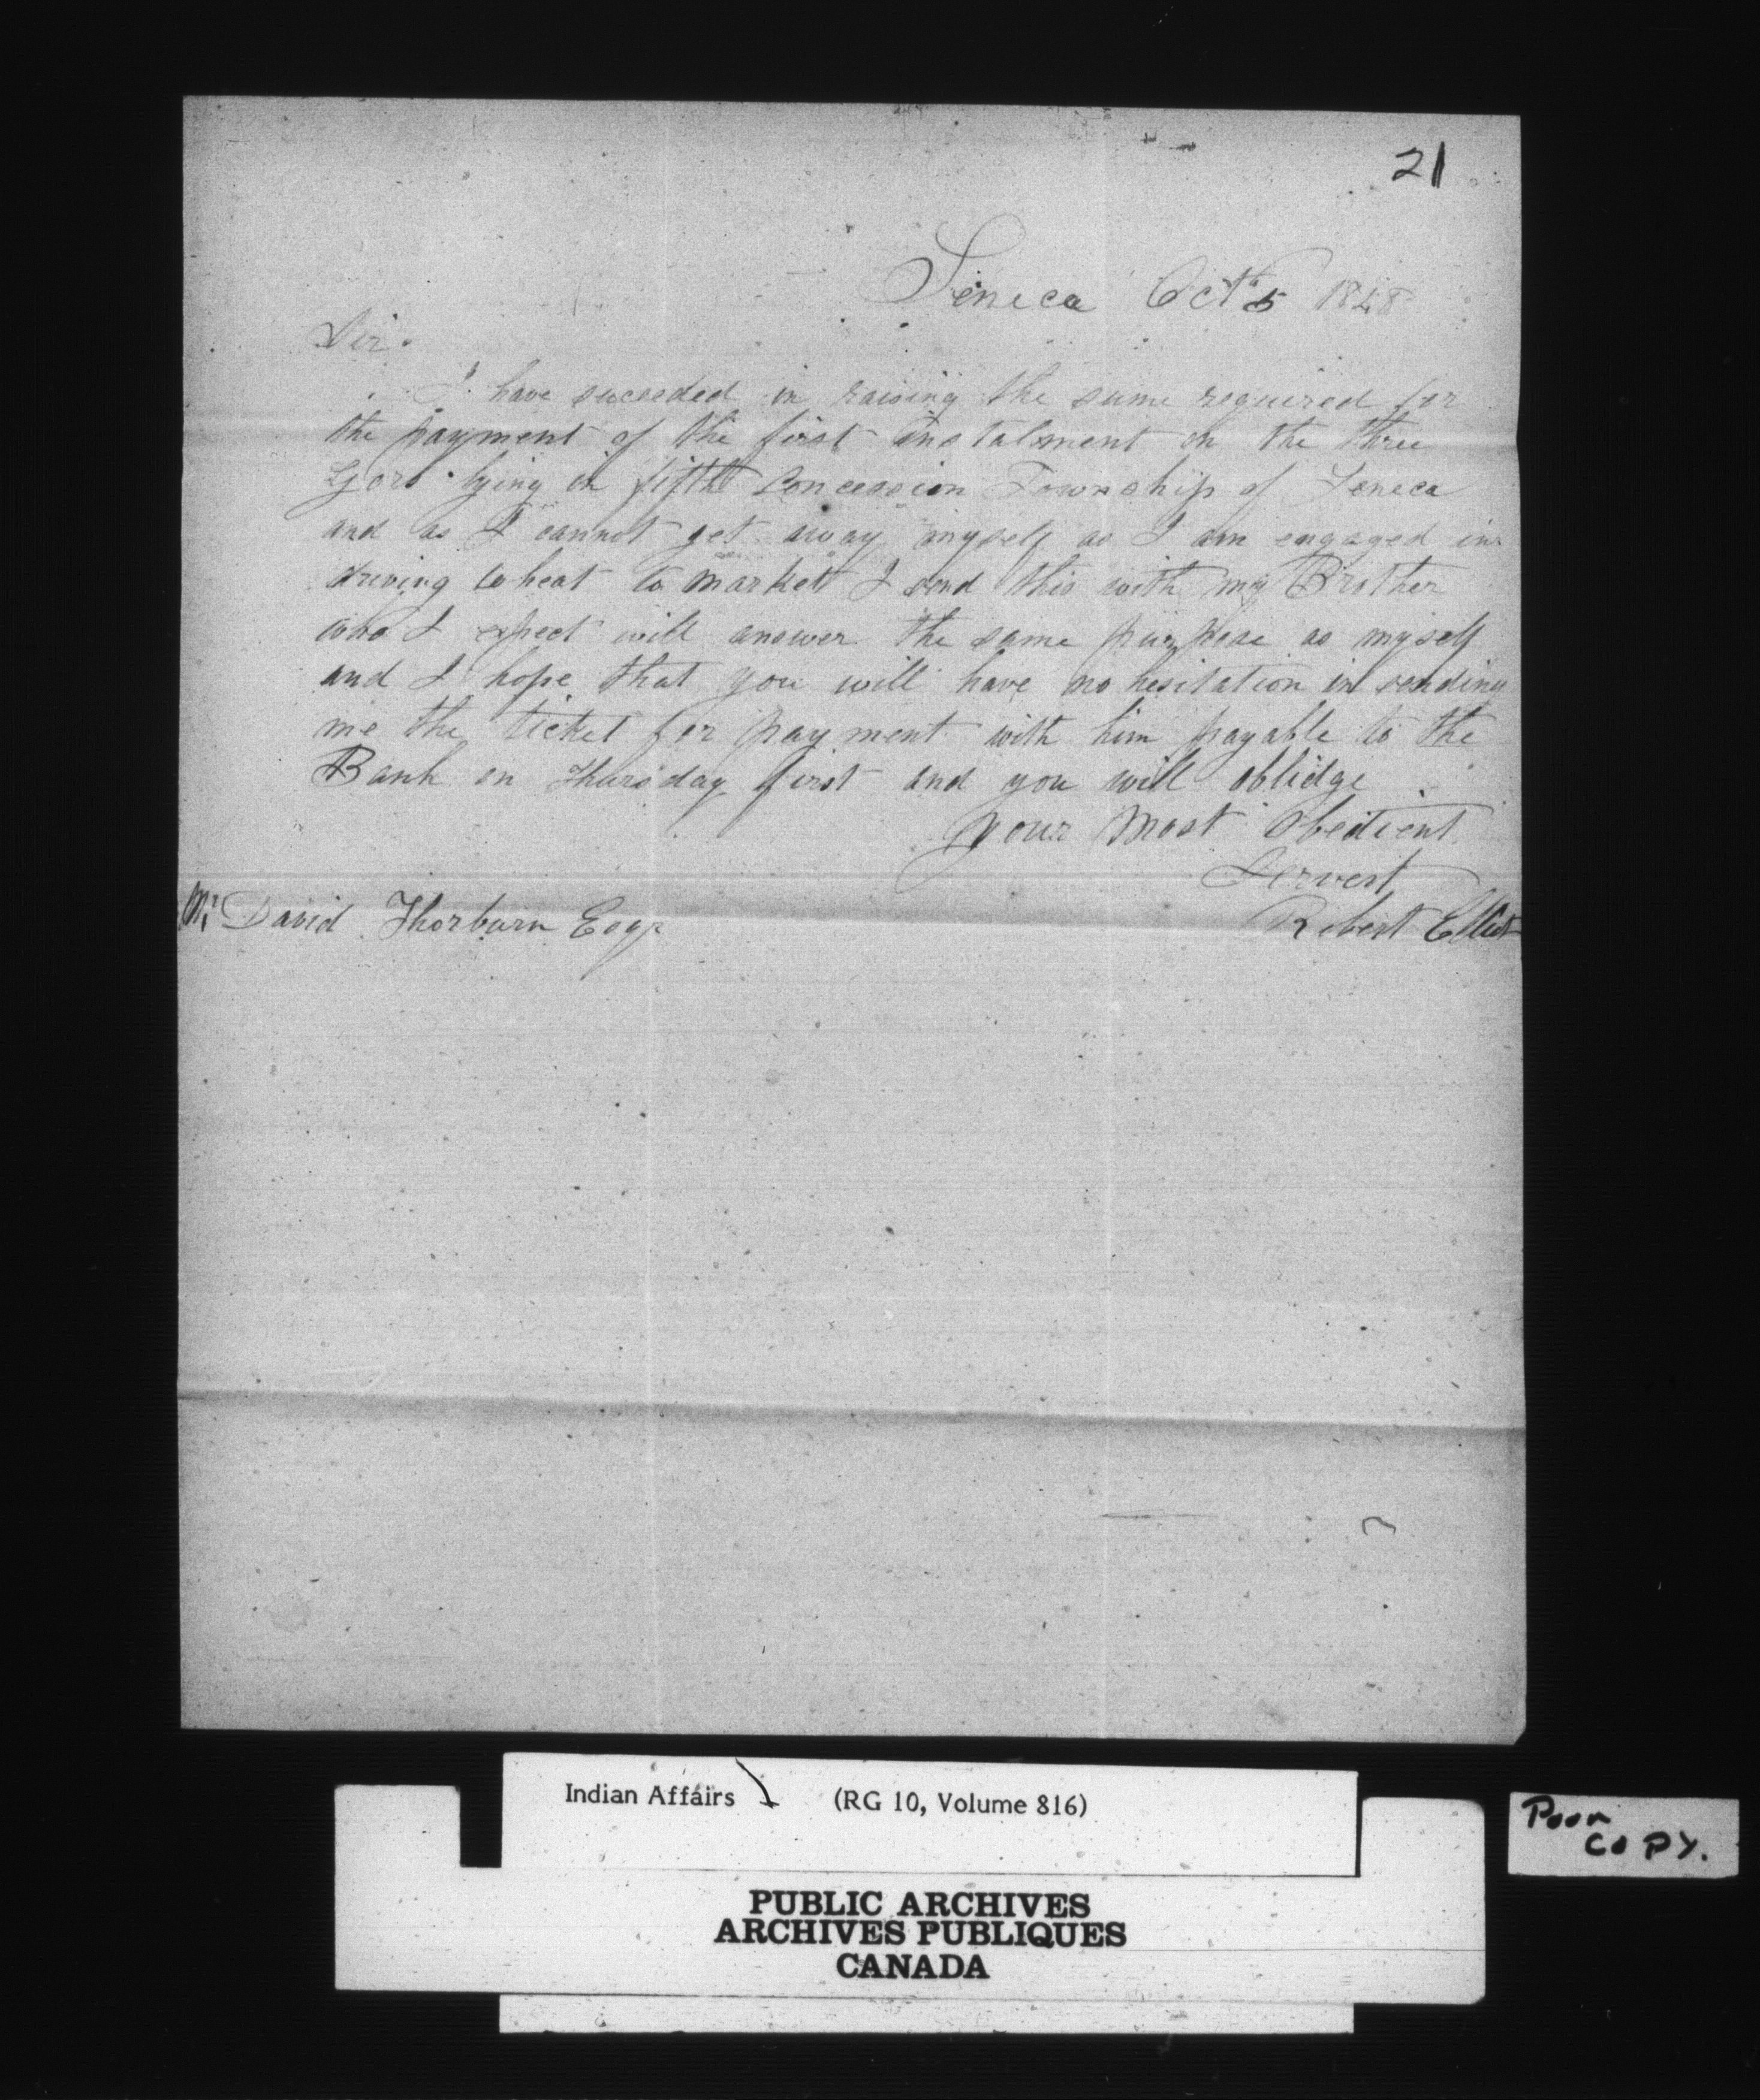 21
Seneca Oct 5th 1848
Sir.
I have succeeded in raising the sume required for
the payment of the first instalment on the three
lying in fifth Concession Township of Seneca
and as I cannot get away myself as I am engaged in
driving wheat to market I send this with my Brother
who I expect will answer the same purpose as myself
and I hope that you will have no hesitation in sending
me the ticket for payment with him payable to the
Bank on Thursday first and you will oblidge
your Most Obedient
Servent
Mr David Thorburn Esqr
Robert Elliot
Indian Affairs (RG 10, Volume 816)
Poor
COPY.
PUBLIC ARCHIVES
ARCHIVES PUBLIQUES
CANADA